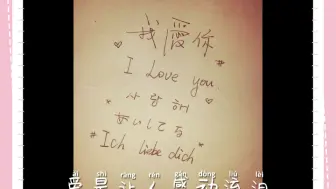 我愛你
I Love you
사랑해
あいしてる
Ich liebe dich
ài shì ràng rén gǎn dòng liú lèi
爱是让人感动流泪